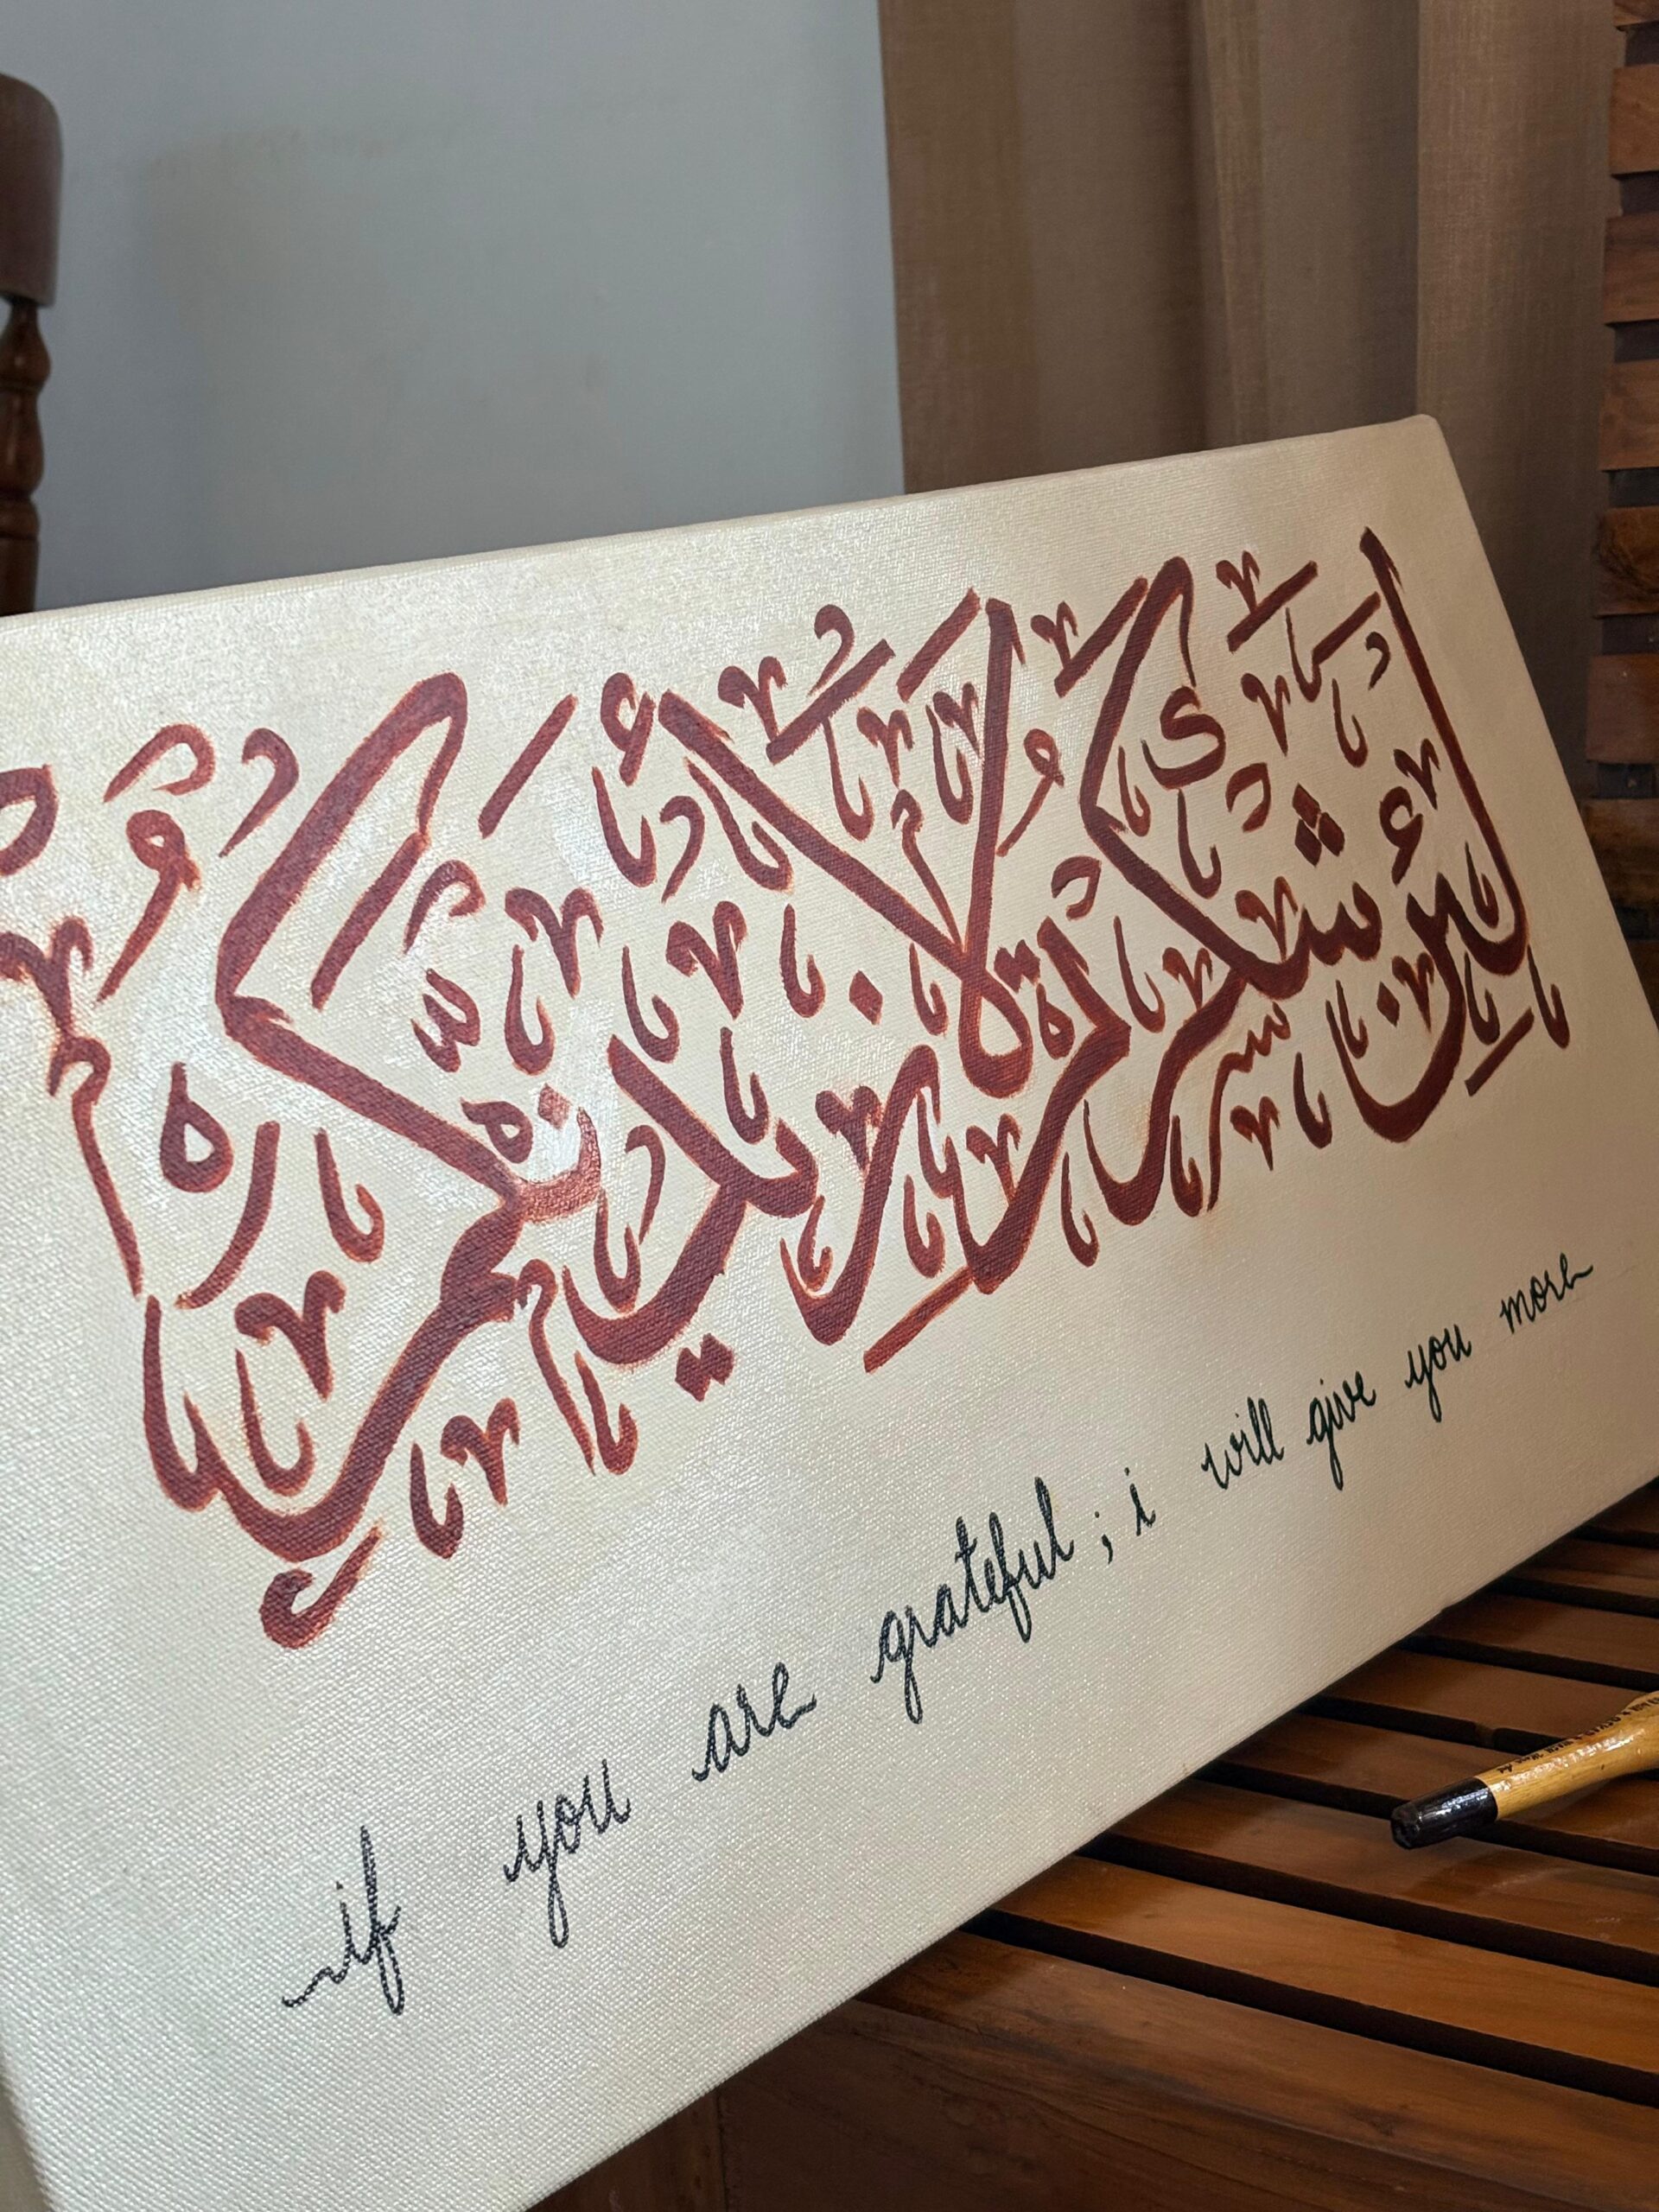 لئن شكرتم لأزيدنكم
if you are grateful ; i will give you more